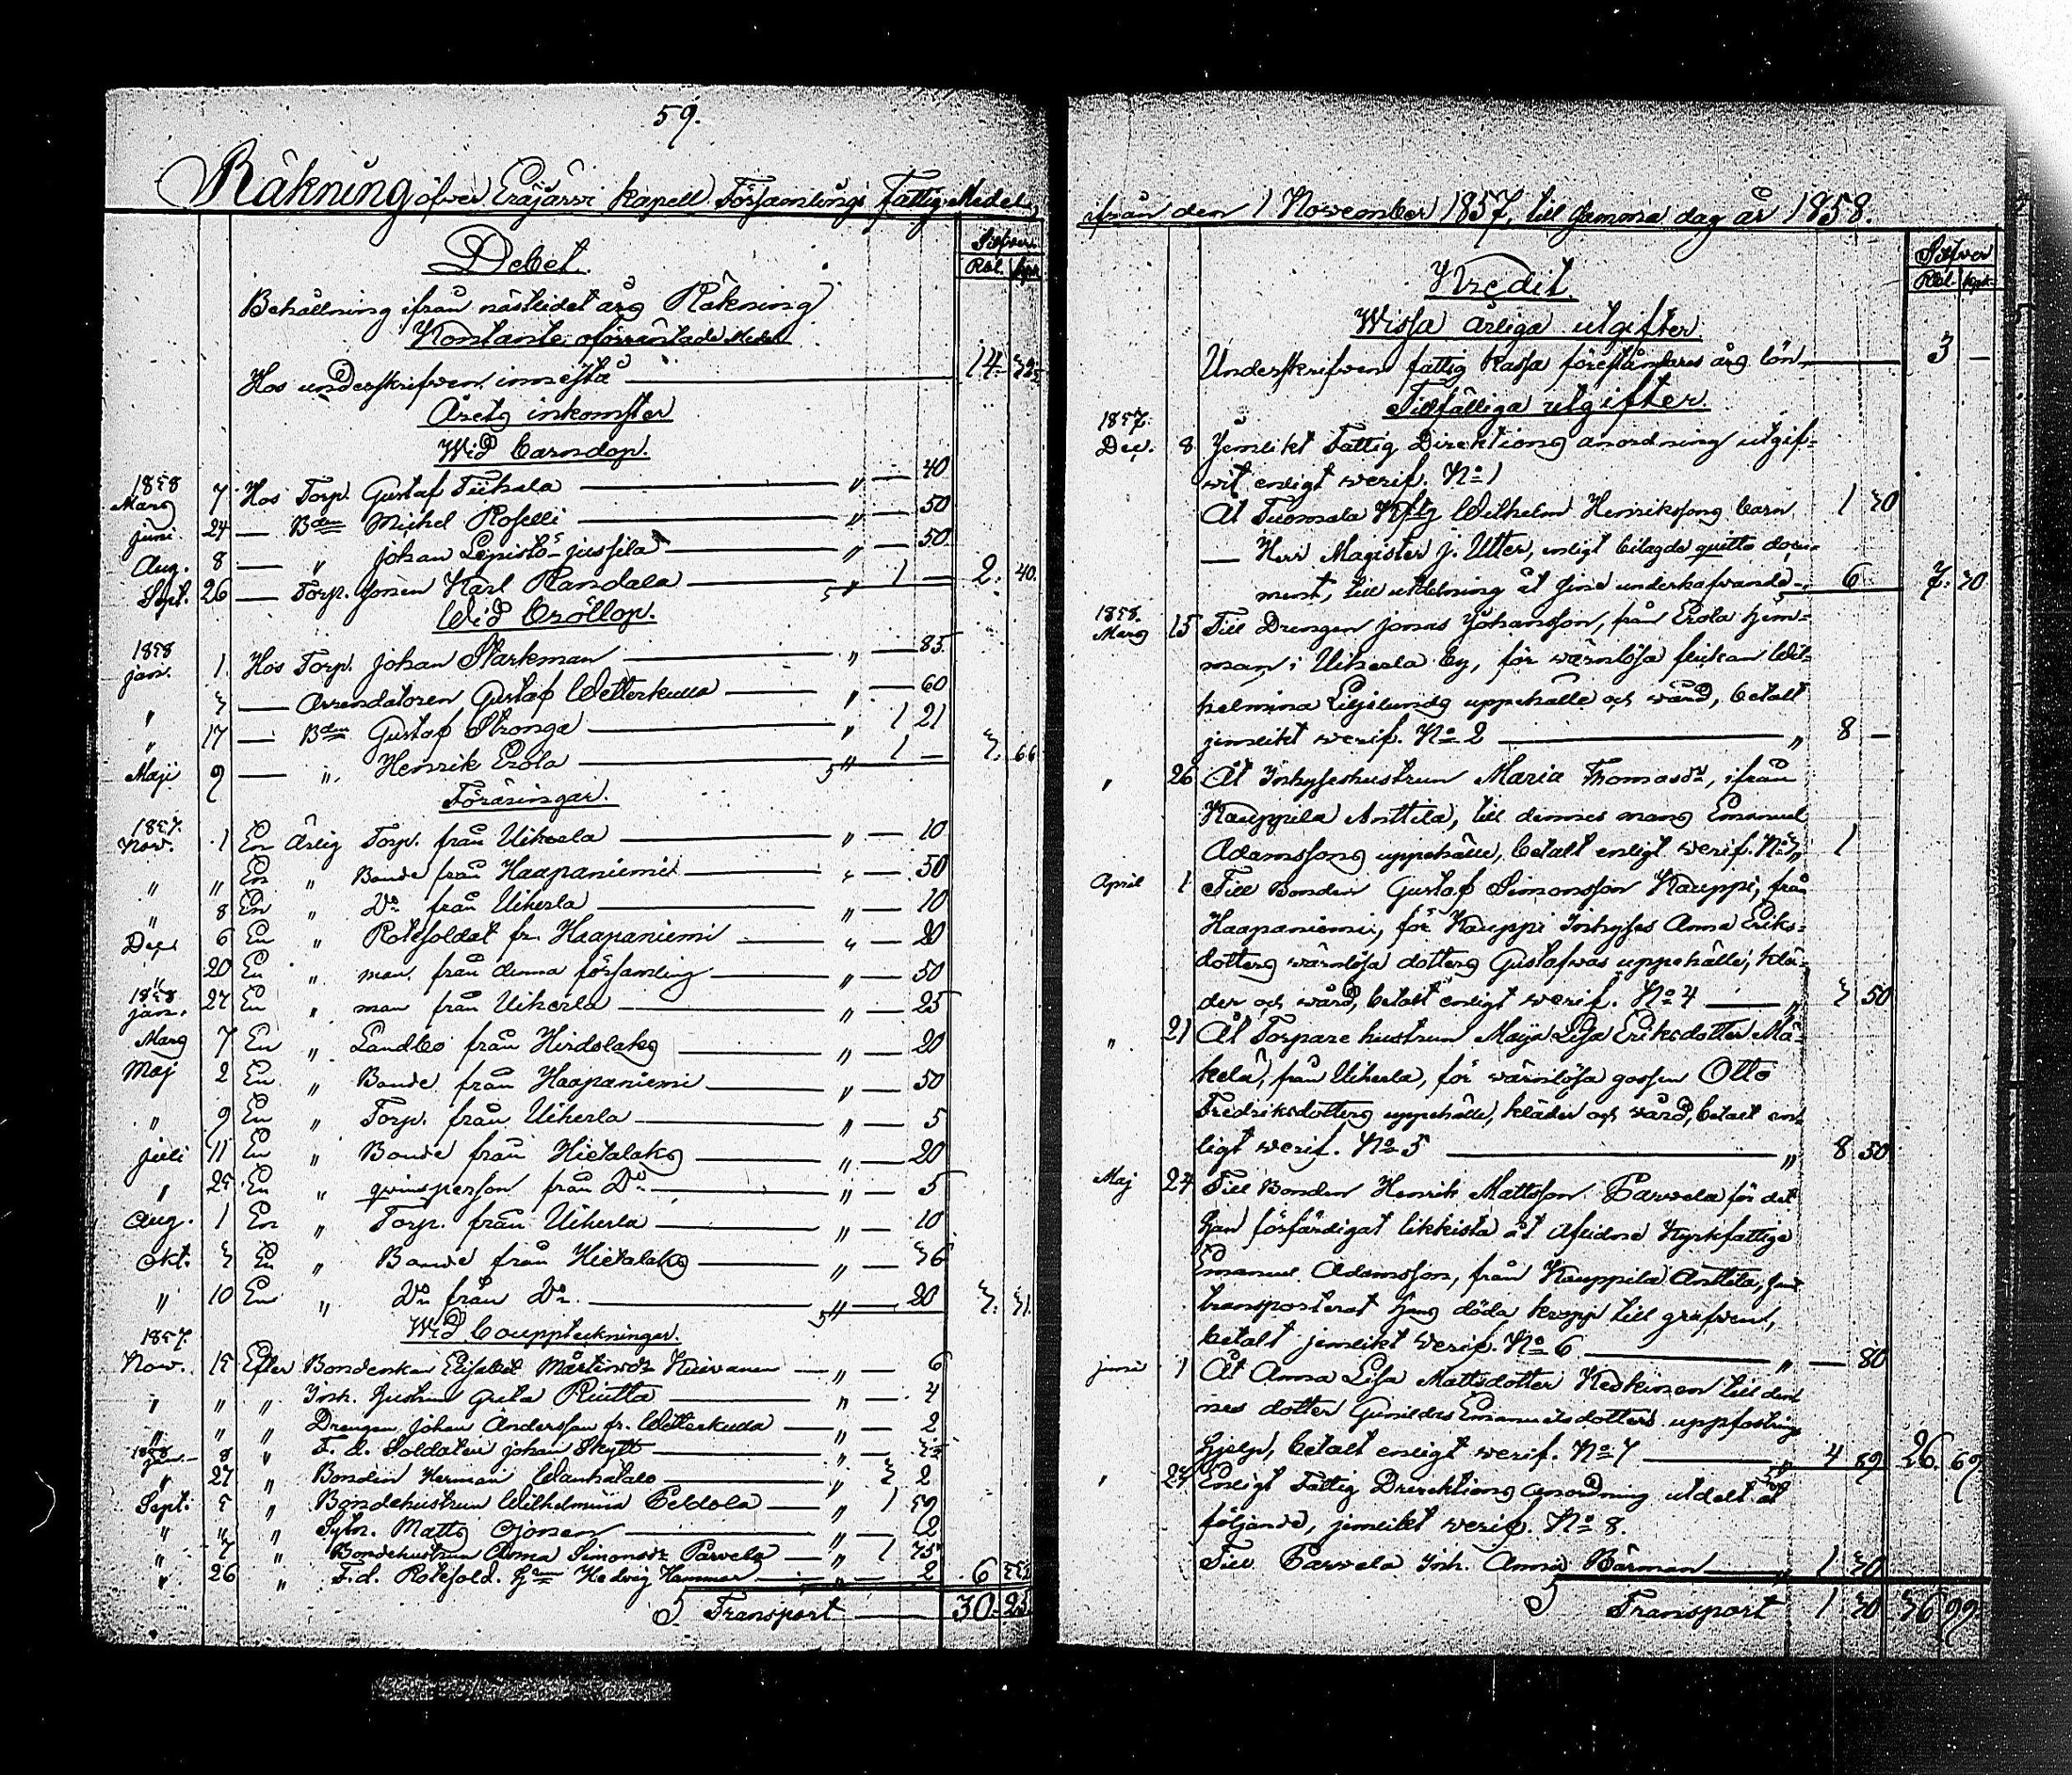 59.
Räkning öfver Eräjärvi Kapell Församlings Fattig Medel,
Debet.
Silfver.
Rbl. kpk.
Behållning ifrån nästledet års Räkning
Kontante oförräntade Medel
Hos underskrifven innestå — 14.
Årets inkomster
Wid barndop.
1858
Mars 7 Hos Torp. Gustaf Tiihala — " — 40
Juni 24 — Bden Michel Roselli — " — 50
Aug. 8 — " Johan Lepistö-Jussila — " — 50.
Sept. 26 — Torp. sonen Karl Randala — " 1 — 2. 40.
Wid bröllop.
1858
Jan. 1. Hos Torp. Johan Starkman — " — 85.
" 3 — Arrendatoren Gustaf Wetterkulla — " — 60
" 17 — Bden Gustaf Stronga — " 1 21
Maji 9 — " Henrik Erola — 5 " 1 — 3. 66
Föräringar.
1857.
Nov. 1 En ärlig Torp. från Uiherla — " — 10
" " En " Bonde från Haapaniemi — " — 50
" 8 En " Do från Uiherla — " — 10
Dec. 6 En " Rotesoldat fr. Haapaniemi — " — 20
20 En " man, från denna församling — " — 50
1858
Jan. 27 En " man från Uiherla — " — 25
Mars 7 En " Landbo från Hirdolaks — " — 20
Maj 2 En " Bonde från Haapaniemi — " — 50
" 9 En " Torp. från Uiherla — " — 5
Juli 11 En " Bonde från Hietalaks — " — 20
" 25 En " qwinsperson från Do — " — 5
Aug. 1 En " Torp. från Uiherla — " — 10
Okt. 3 En " Bonde från Hietalaks — " — 36
" 10 En " Do från Do — 5 " — 20 3. 31.
Wid bouppteckningar.
1857.
Nov. 15 Efter Bondenkan Elisabet Mårtensdr — " — 6
" " " Inh. hustrun Greta Riutta — " — 4
" " " Drengen Johan Andersson fr. Wetterkulla — " — 2
1858
Jan. 8 " F. d. Soldaten Johan Skytt — "
" 27 " Bonden Herman Wanhatalo — " 3 2
Sept. 5 " Bondehustrun Wilhelmina Peldola — " 1 59
" " " Sytn. Matts — " — 2
" 7 " Bondehustrun Anna Simonsdr Parvela — " 1 75
" 26 " F. d. Rotesold. Hedvig Hammar — " — 2 6
5 Transport — 30. 25.
ifrån den 1 November 1857, till samma dag år 1858.
Kredit.
Silfver
Rbl. kpk.
Wissa årliga utgifter.
Underskrifven fattig Kassa föreståndares års lön — 3 —
Tillfälliga utgifter.
1857.
Dec. 8 Jemlikt Fattig Direktions anordning utgif-
vit enligt verif. No 1
At Tuomala Wilhelm Henrikssons barn 1 30
— Herr Magister J. Utter, enligt bilagde quitto docu-
ment, till utdelning åt sine underhafvande — 6 7. 30
1858.
Mars 15 Till Drengen Jonas Johansson, från Erola hem-
man, i Uiherla by, för wärnlösa flickan Wil-
helmina Liljelunds uppehälle och wård, betalt
jemlikt verif. No 2 — " 8 —
" 26 Åt Inhyseshustrun Maria Thomasdr, ifrån
Kauppila Anttila, till dennes mans Emanuel
Adamssons uppehälle, betalt enligt verif. No 3 " 1
April 1 Till Bonden Gustaf Simonsson Kauppi, från
Haapaniemi, för Kauppi Inhyses Anna Eriks-
dotters wärnlösa dotters Gustafvas uppehälle, klä-
der och wård, betalt enligt verif. No 4 — " 3 50
" 21 Åt Torpare hustrun Maija Lisa Eriksdotter Mä-
kelä, från Uiherla, för wärnlösa gossen Otto
Fredriksdotters uppehälle, kläder och wård, betalt en-
ligt verif. No 5 — " 8 50
Maj 24 Till Bonden Henrik Mattsson Parvela för det
han förfärdigat likkista åt aflidne Kyrkfattige
Emanuel Adamsson, från Kauppila Anttila,
transporterat hans döda kropp till grafven,
betalt jemlikt verif. No 6 — " — 80
Juni 1 Åt Anna Lisa Mattsdotter Keskinen till den-
nes dotter Gunildas Emanuelsdotters uppfostrings
hjelp, betalt enligt verif. No 7 — 4 89 26. 69
" 24 Enligt Fattig Direktions anordning utdelt åt
följande, jemlikt verif. No 8.
Till Parvela Inh. Anna Bärman — " 1 30
5 Transport 1 30 36 99